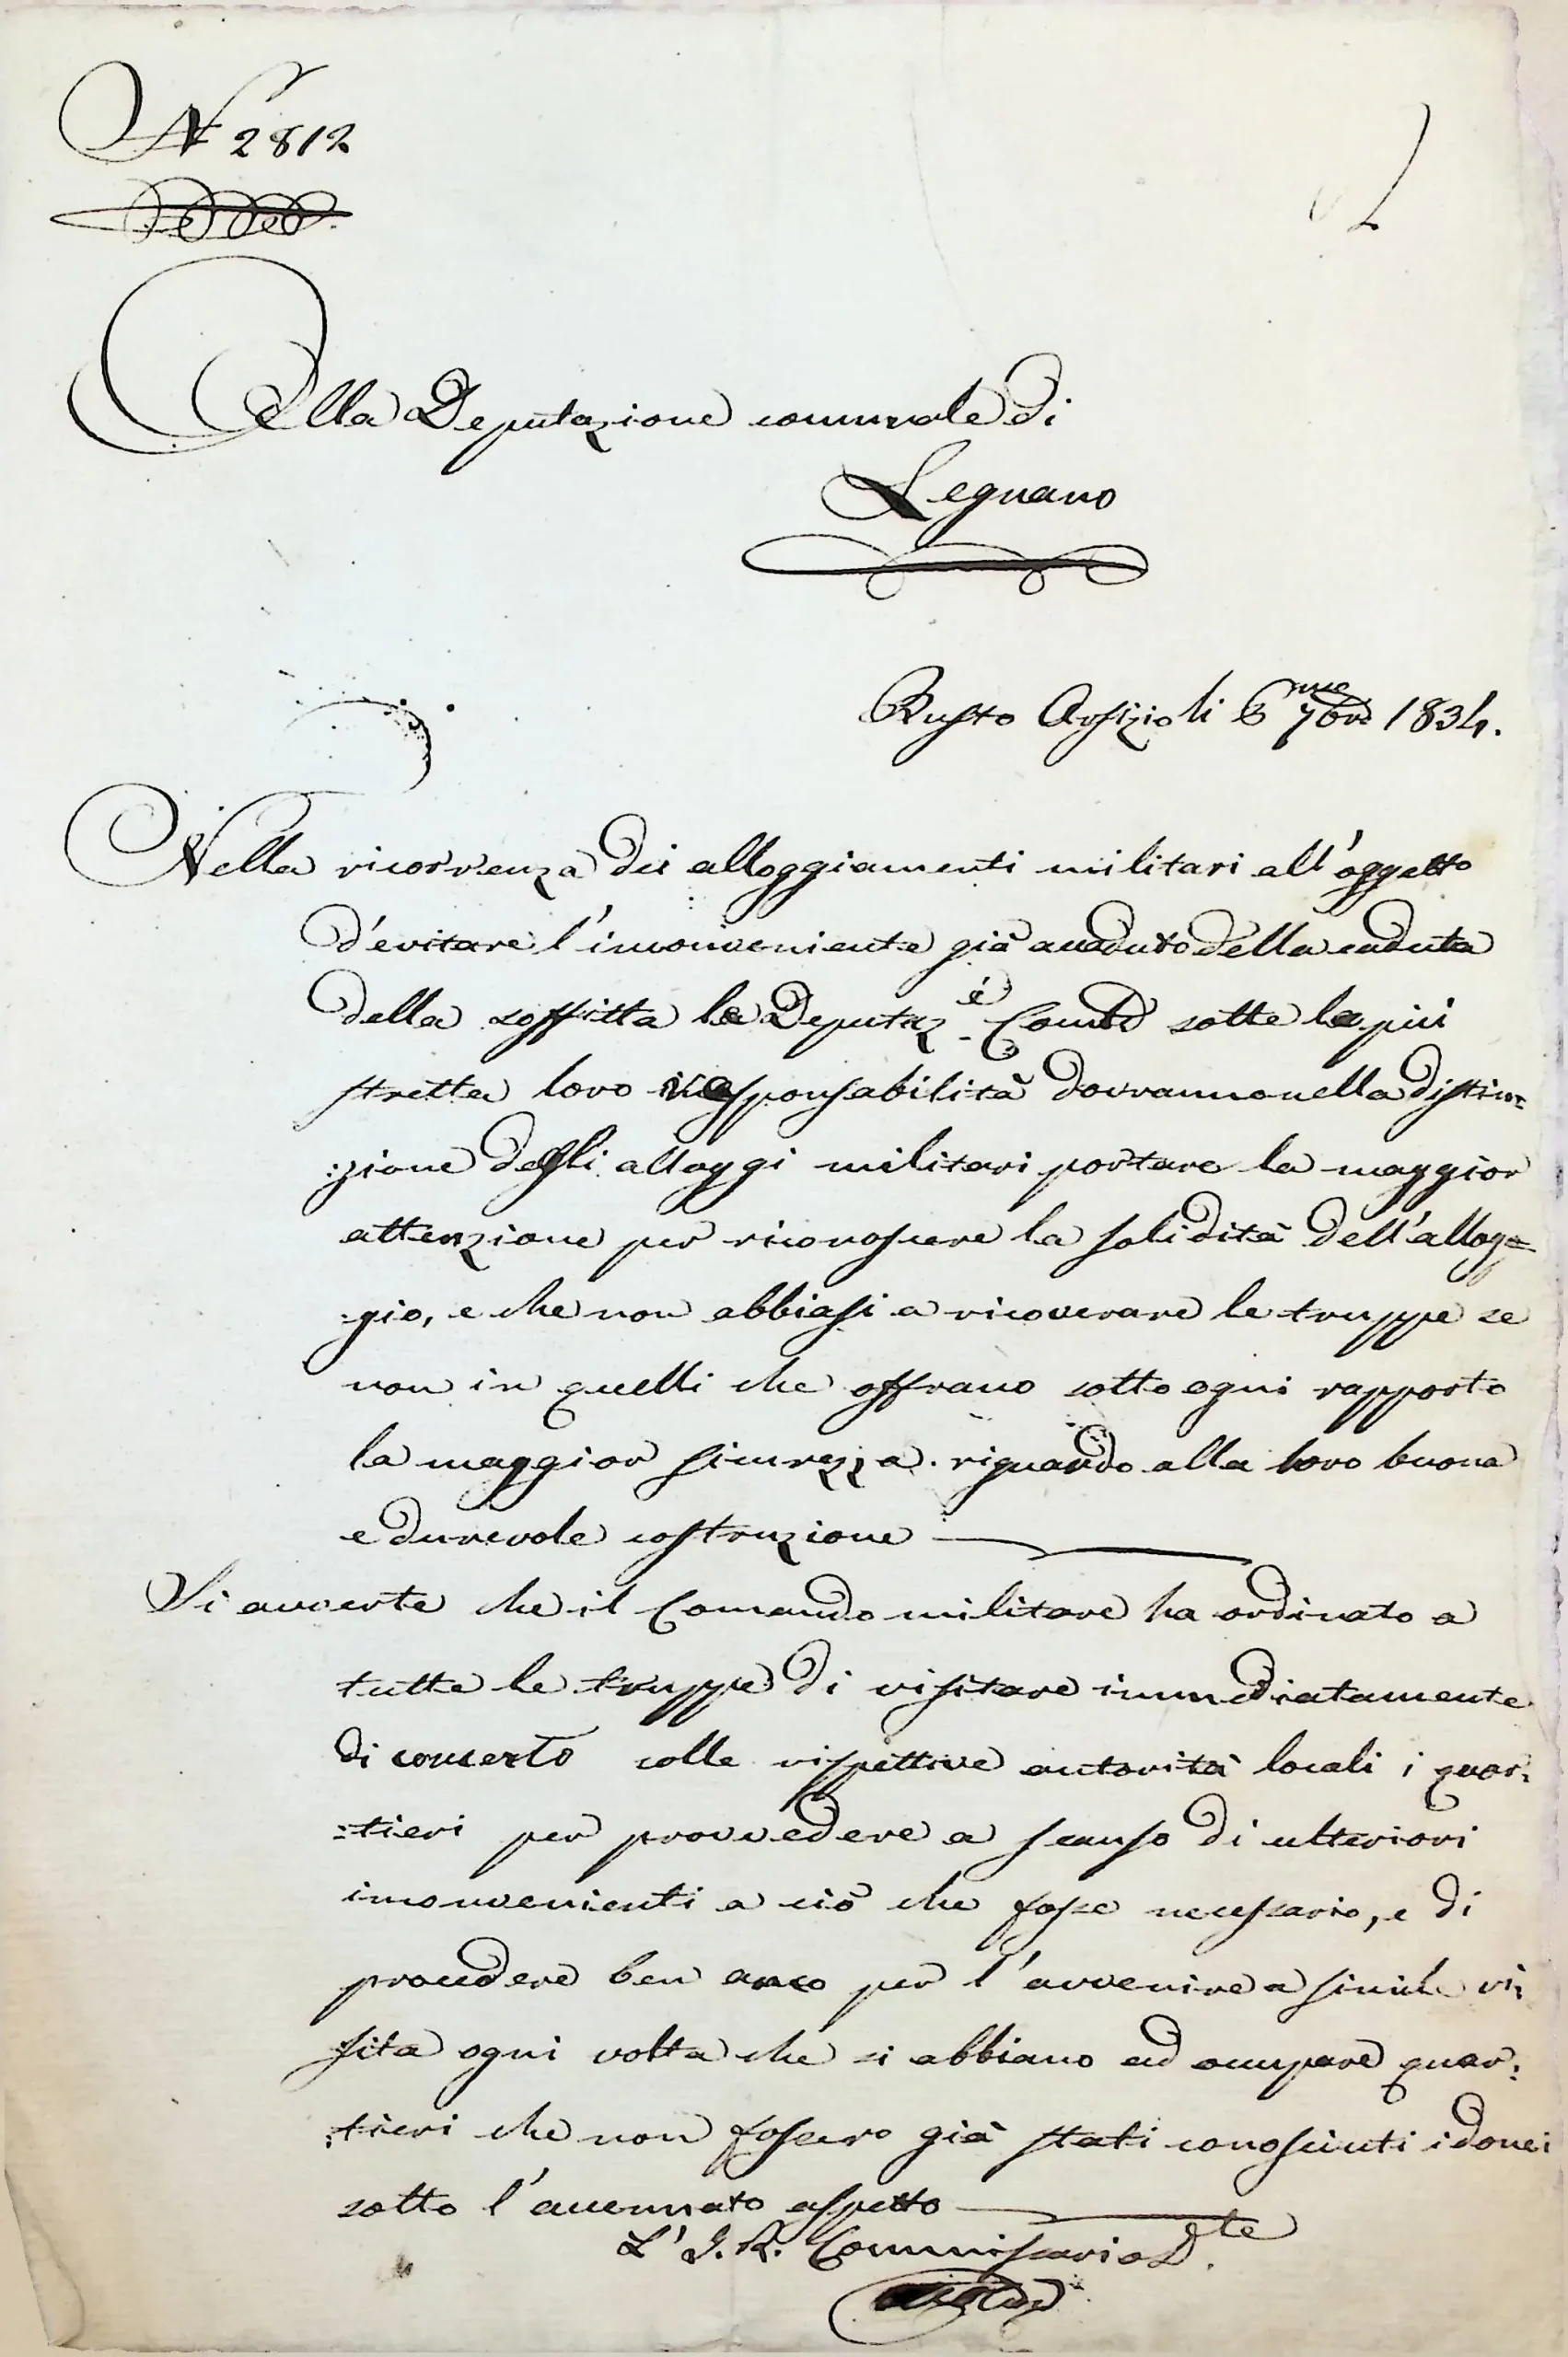 N 2812
Alla Deputazione comunale di
Legnano
Busto Arsizio li 6 7bre 1834.
Nella ricorrenza dei alloggiamenti militari all'oggetto
d'evitare l'inconveniente già accaduto della caduta
della soffitta le Deputaz.i Comli sotto la più
stretta loro responsabilità dovranno nella distin=
:zione degli alloggi militari portare la maggior
attenzione per riconoscere la solidità dell'allog=
=gio, e che non abbiasi a ricoverare le truppe se
non in quelli che offrano sotto ogni rapporto
la maggior sicurezza riguardo alla loro buona
e durevole costruzione
Si avverte che il Comando militare ha ordinato a
tutte le truppe di visitare immediatamente
di concerto colle rispettive autorità locali i quar:
=tieri per provvedere a scanso di ulteriori
inconvenienti a ciò che fosse necessario, e di
procedere ben anco per l'avvenire a simile vi:
sita ogni volta che si abbiano ad occupare quar:
:tieri che non fossero già stati conosciuti idonei
sotto l'accennato aspetto
L'I. R. Commissario D.te